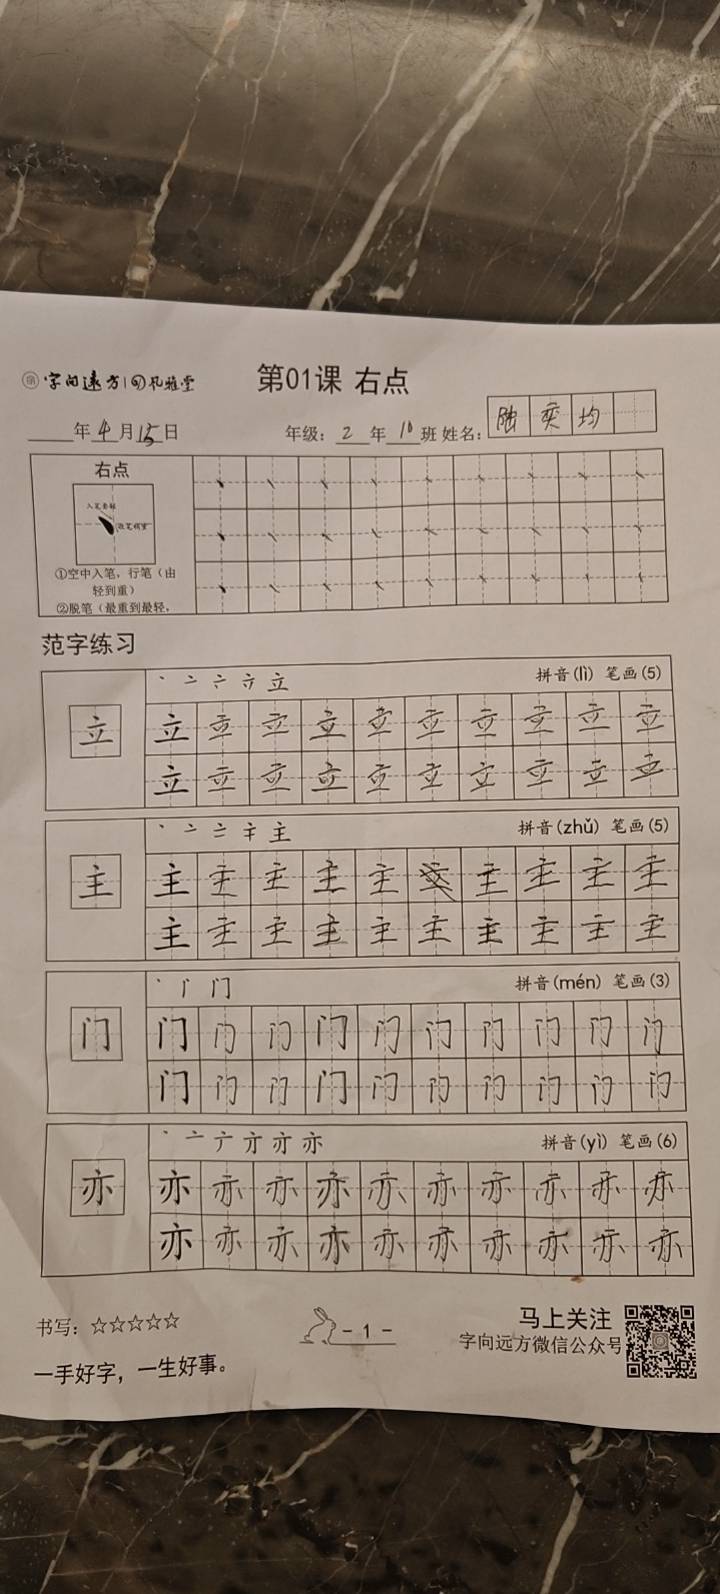 字向远方|回孔雅堂
第01课 右点
年4月15日 年级：2年10班 姓名：陆奕均
右点
①空中入笔，行笔（由
轻到重）
②脱笔（最重到最轻，
范字练习
丶 亠 立 拼音(lì) 笔画(5)
立 立 立 立 立 立 立 立 立 立 立
立 立 立 立 立 立 立 立 立 立
丶 亠 主 拼音(zhǔ) 笔画(5)
主 主 主 主 主 主 主 主 主 主
主 主 主 主 主 主 主 主 主 主
丶 门 拼音(mén) 笔画(3)
门 门 门 门 门 门 门 门 门 门 门
门 门 门 门 门 门 门 门 门 门
丶 亠 亦 拼音(yì) 笔画(6)
亦 亦 亦 亦 亦 亦 亦 亦 亦 亦 亦
亦 亦 亦 亦 亦 亦 亦 亦 亦 亦
书写：☆☆☆☆☆
一手好字，一生好事。
- 1 -
马上关注
字向远方微信公众号